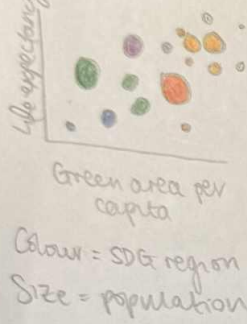 Life expectancy
Green area per
capita
Colour = SDG region
Size = population